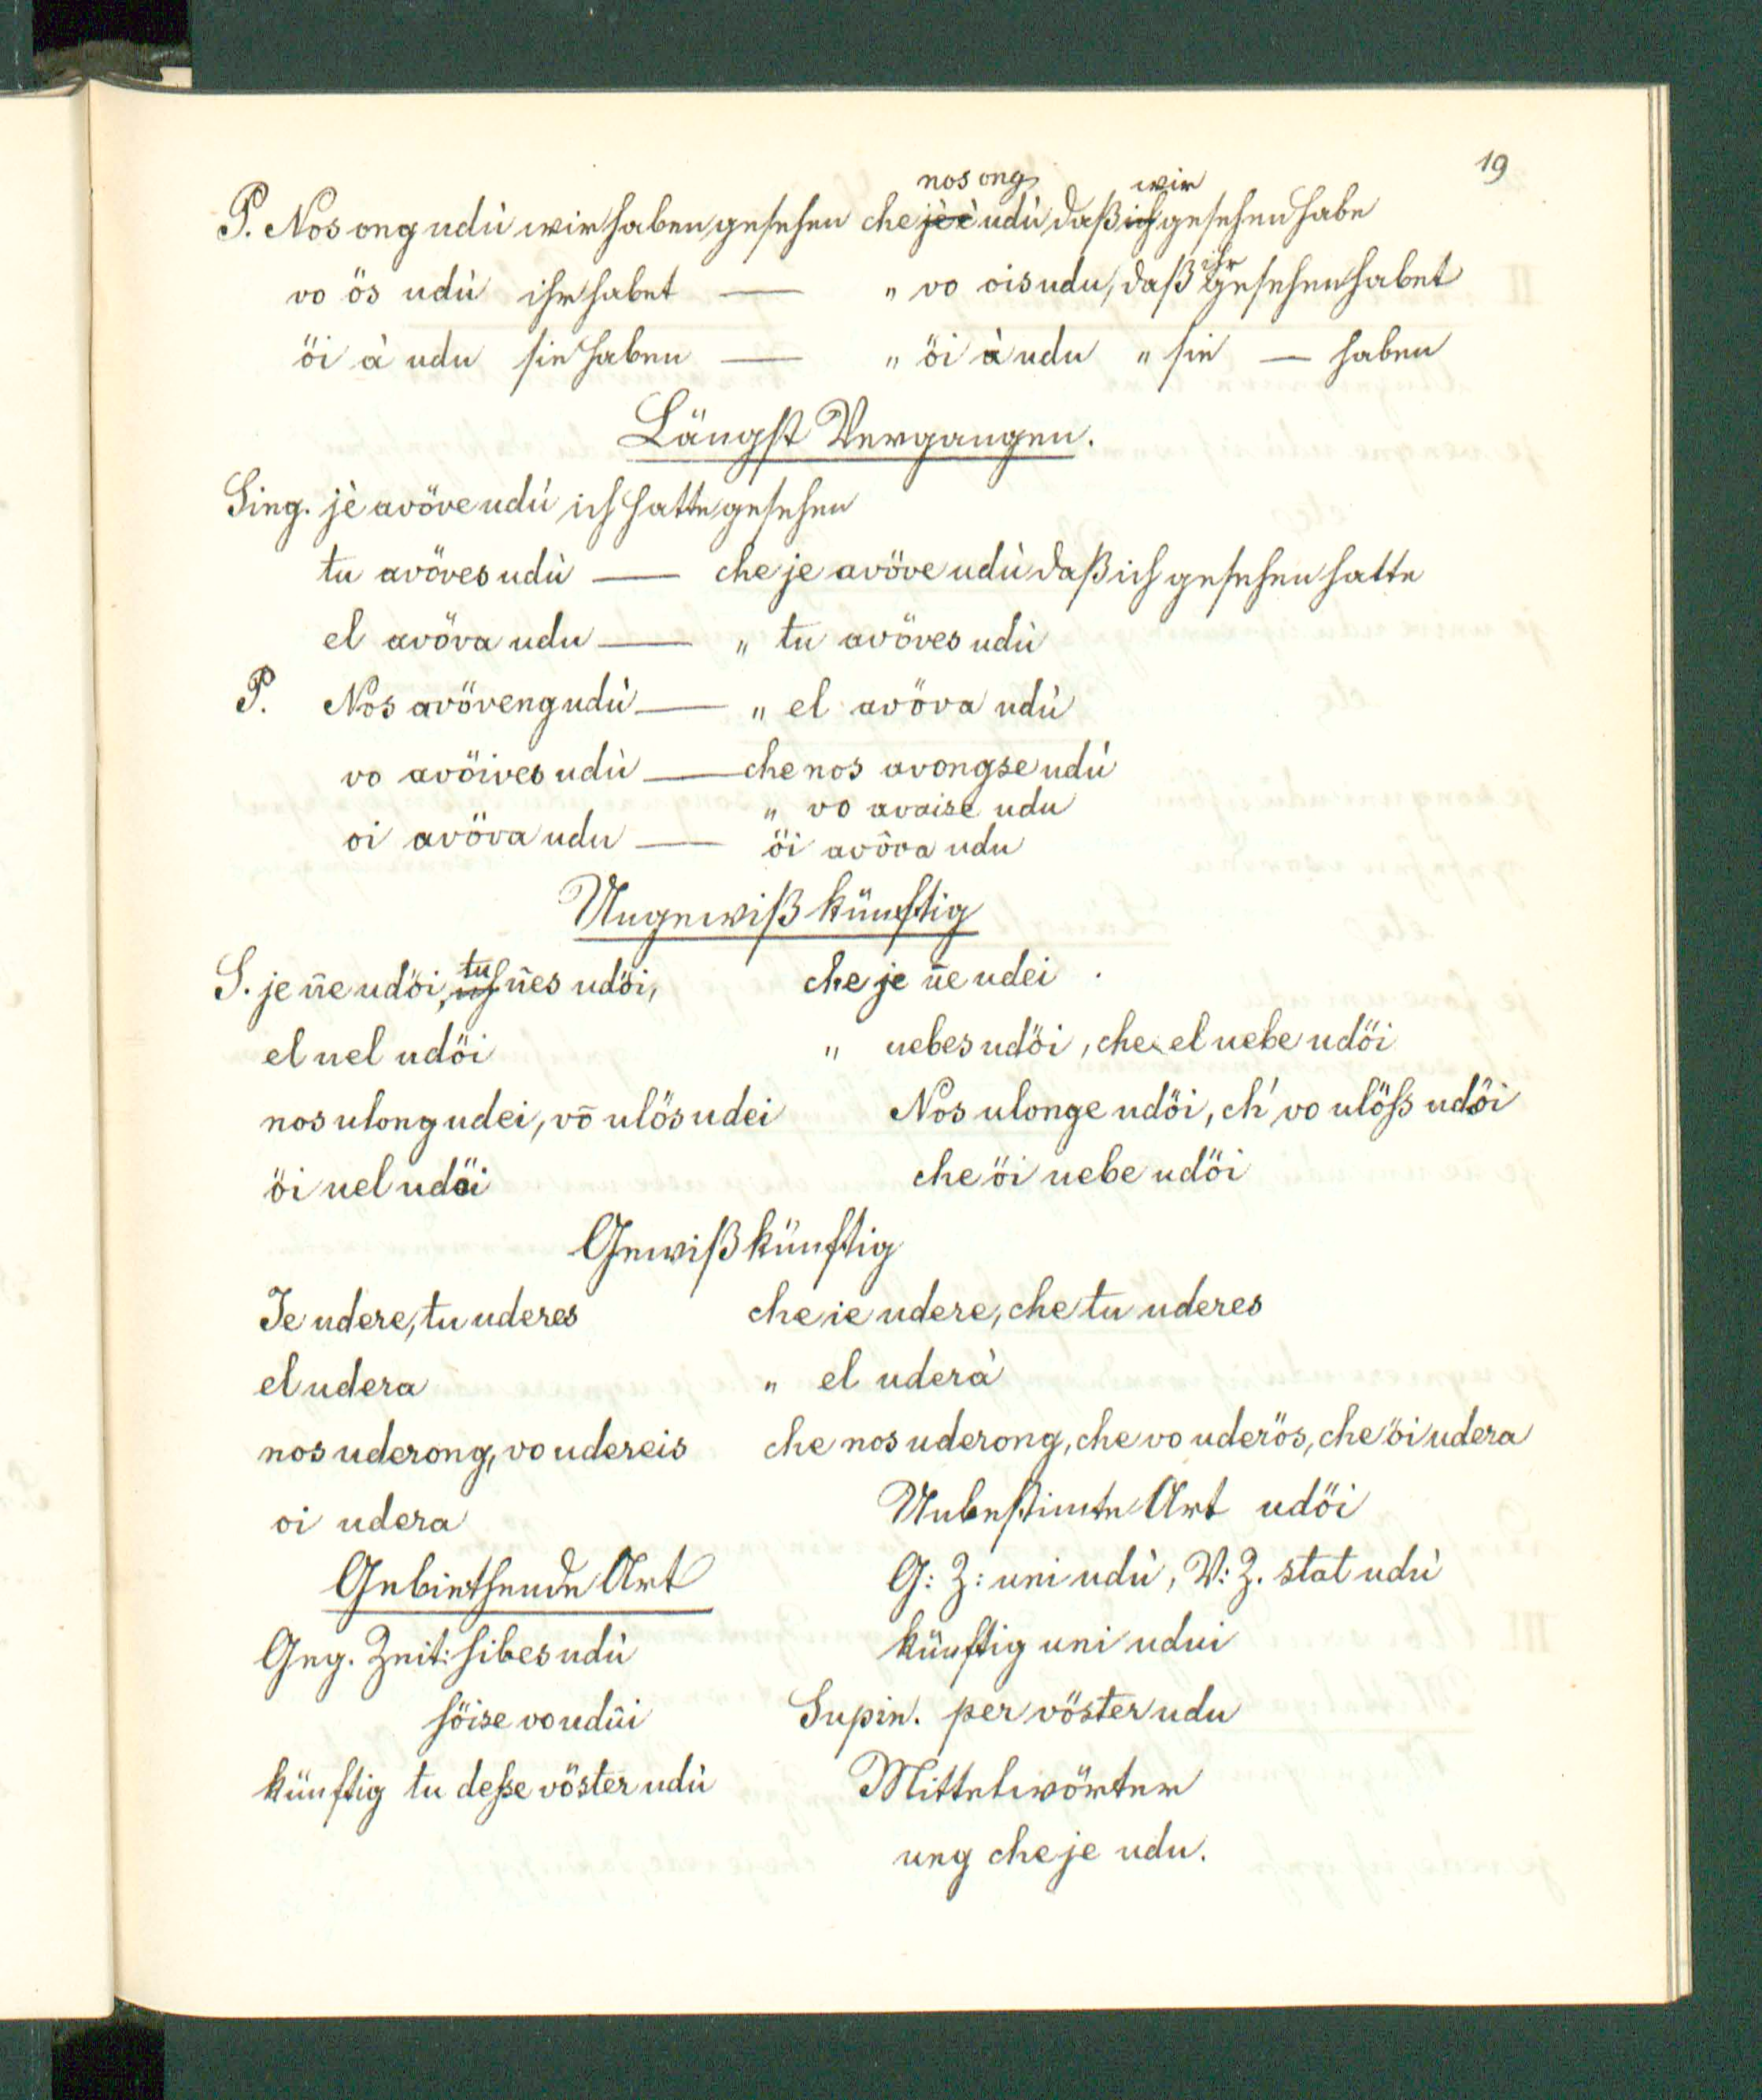 19
nos ong wir
P. Nos ong udù wir haben gesehen che jè è udù daß ich gesehen habe
vo ös udù ihr habet — " vo ois udu, daß ihr gesehen habet
öi à udu sie haben — " öi à udu " sie — haben
Längst Vergangen.
Sing. jè avöve udù ich hatte gesehen
tu avöves udù — che je avöve udù daß ich gesehen hatte
el avöva udu — " tu avöves udù
P. Nos avöveng udù — " el avöva udù
vo avöives udù — che nos avongse udù
" vo avaise udu
oi avöva udu — öi avöva udu
Ungewiß künftig
S. je ñe udöi, tu ñes udöi, che je ñe udei
el uel udöi " uebes udöi, che el uebe udöi
nos ulong udei, vō ulös udei Nos ulonge udöi, ch' vo ulöss udöi
öi uel udöi che öi uebe udöi
Gewiß künftig
Je udere, tu uderes che ie udere, che tu uderes
el udera " el uderà
nos uderong, vo udereis che nos uderong, che vo uderös, che öi udera
oi udera Unbestimte Art udöi
Gebiethende Art G: Z: uni udù, V: Z. stat udù
Geg. Zeit: sibes udù künftig uni udui
söise vo udüi Supin. per vöster udu
künftig tu desse vöster udù Mittelwörter
ung che je udu.